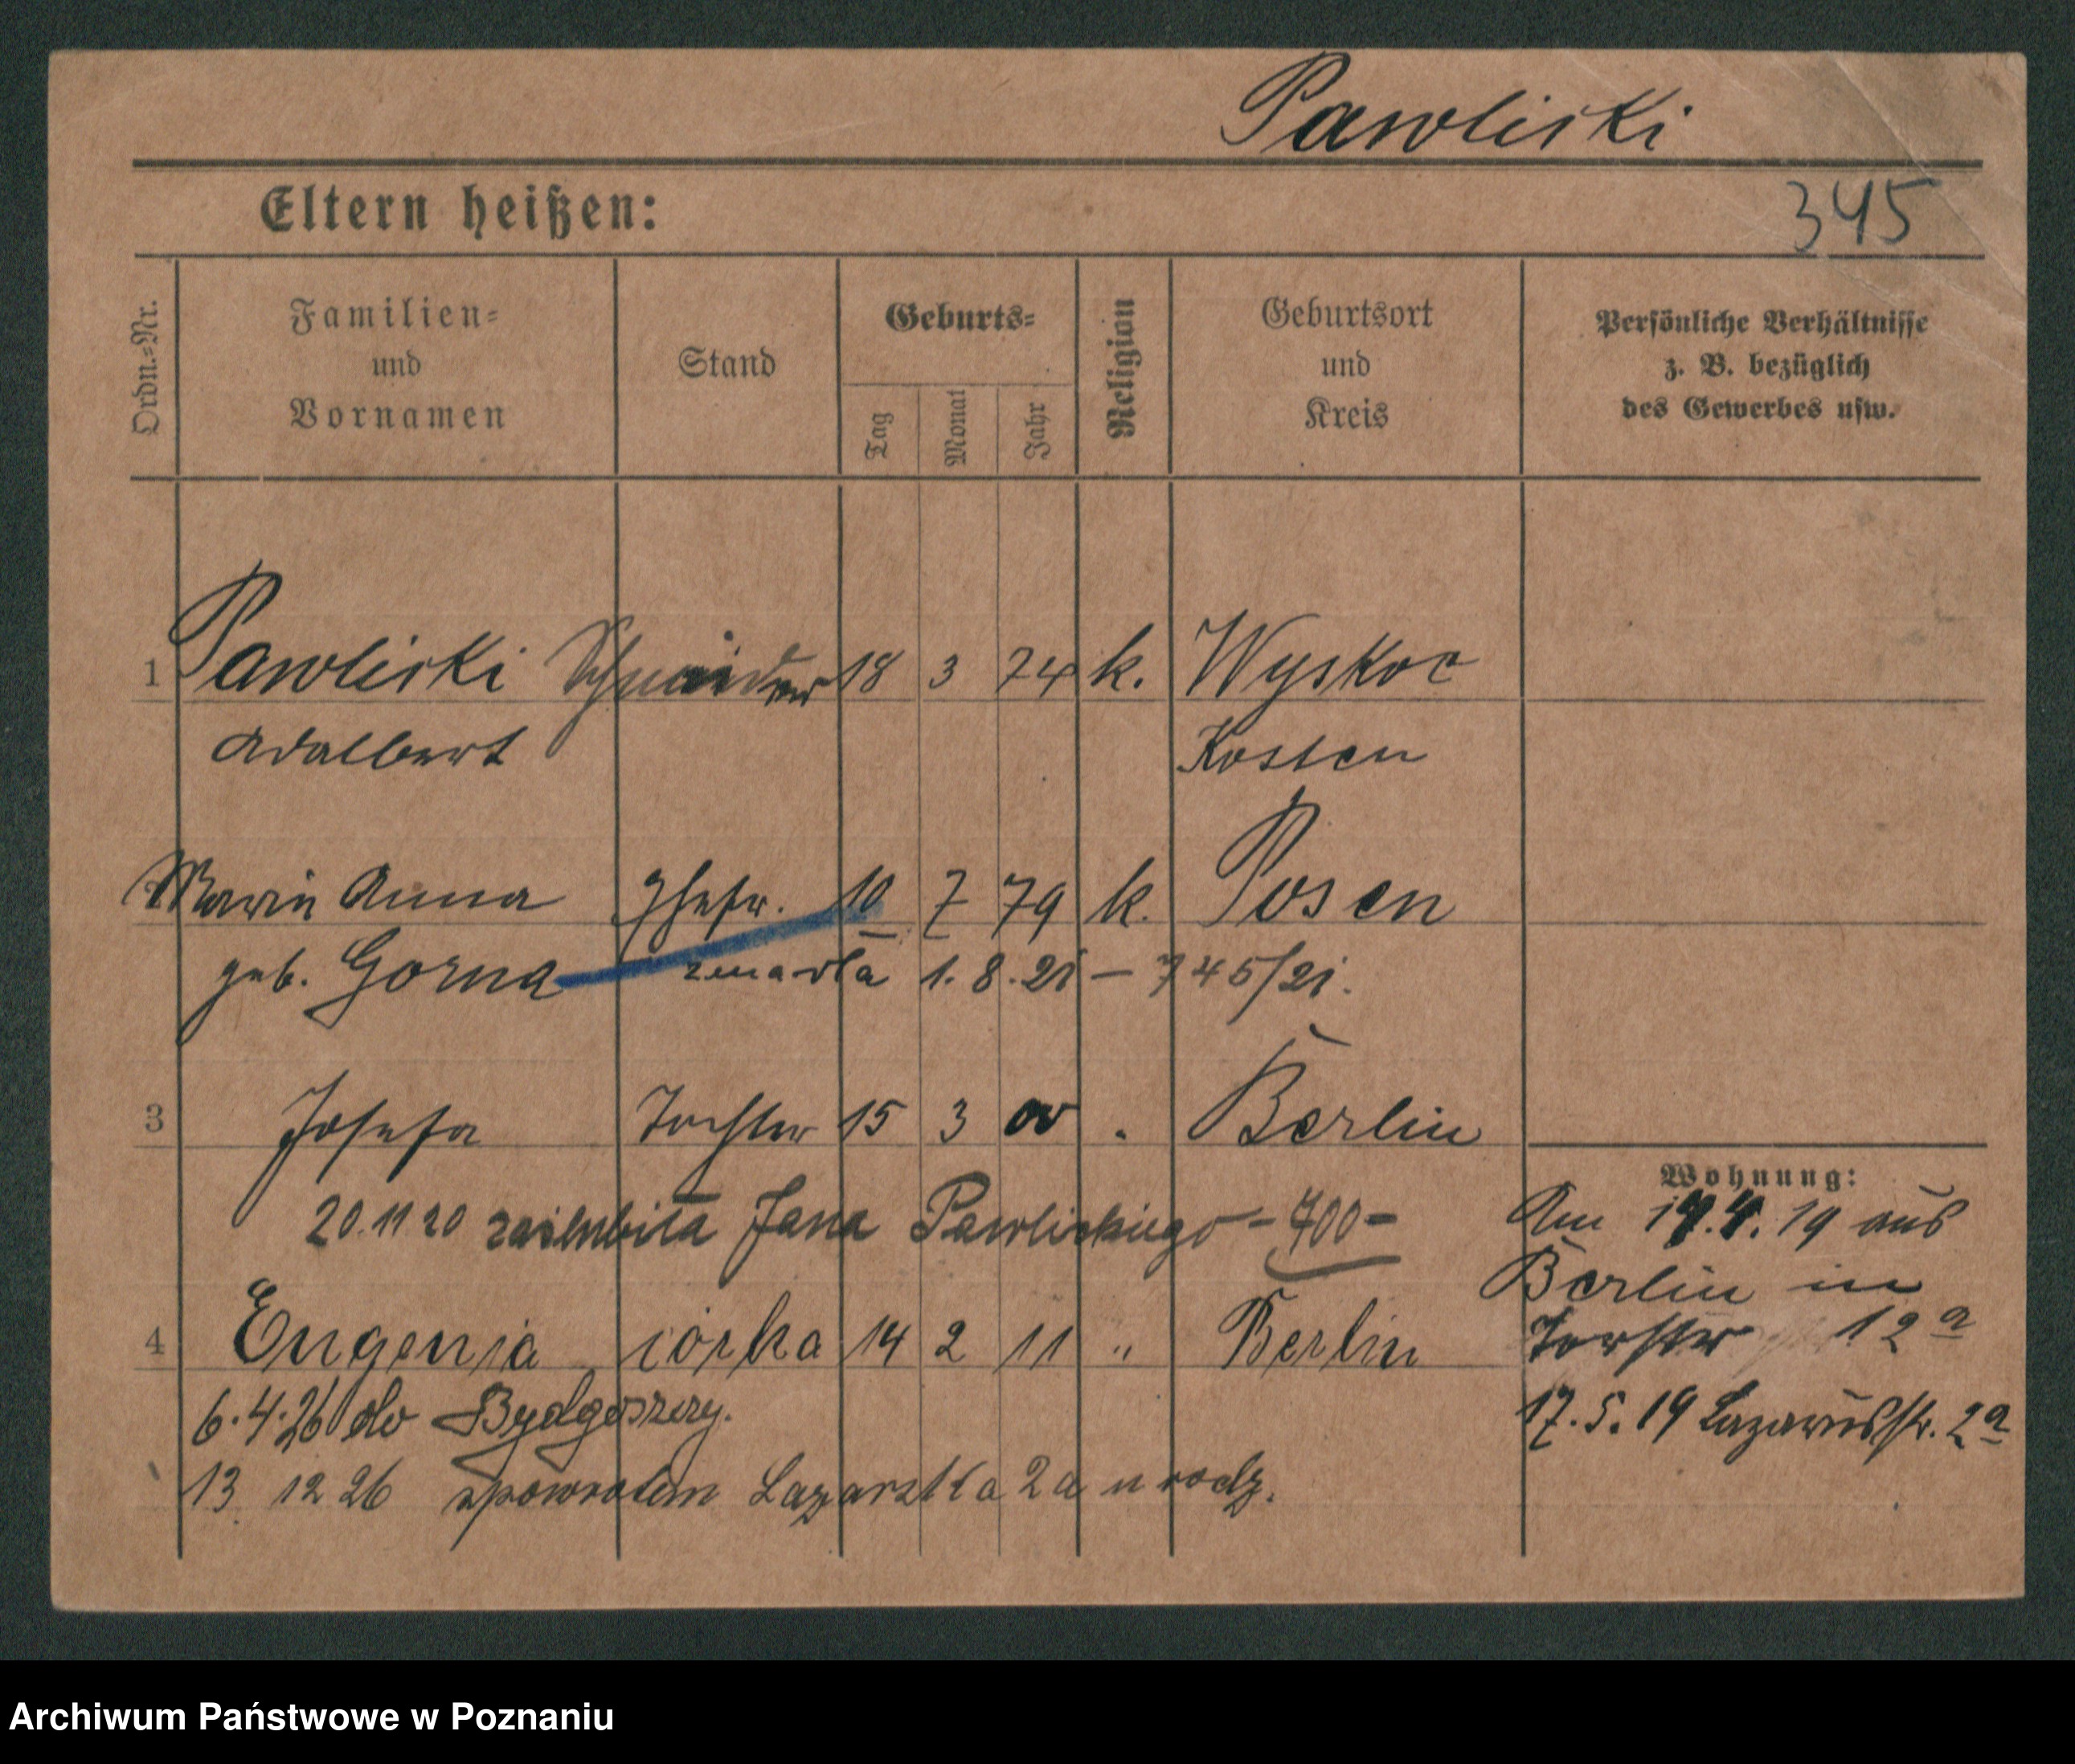 Pawlicki
Eltern heißen:
345
Ordn.-Nr.
Familien-
und
Vornamen
Stand
Geburts-
Tag
Monat
Jahr
Religion
Geburtsort
und
Kreis
Persönliche Verhältnisse
z. B. bezüglich
des Gewerbes usw.
1 Pawlicki Schneider 18 3 74 k. Wyskoc
Adalbert Kosten
Marie Anna Ehefr. 10 7 79 k. Posen
geb. Gorna zmarła 1. 8. 21 – 745/21.
3 Josefa Tochter 15 3 00 . Berlin
Wohnung:
20.11 20 zaślubiła Jana Pawlickiego - 700 -
Am 17.4. 19 aus
Berlin in
4 Eugenja córka 14 2 11 " Berlin
12a
6.4.26 do Bydgoszczy.
17.5.19 Lazarusstr. 2a
13 12 26 spowrotem Łazarska 2a u rodz.
Archiwum Państwowe w Poznaniu